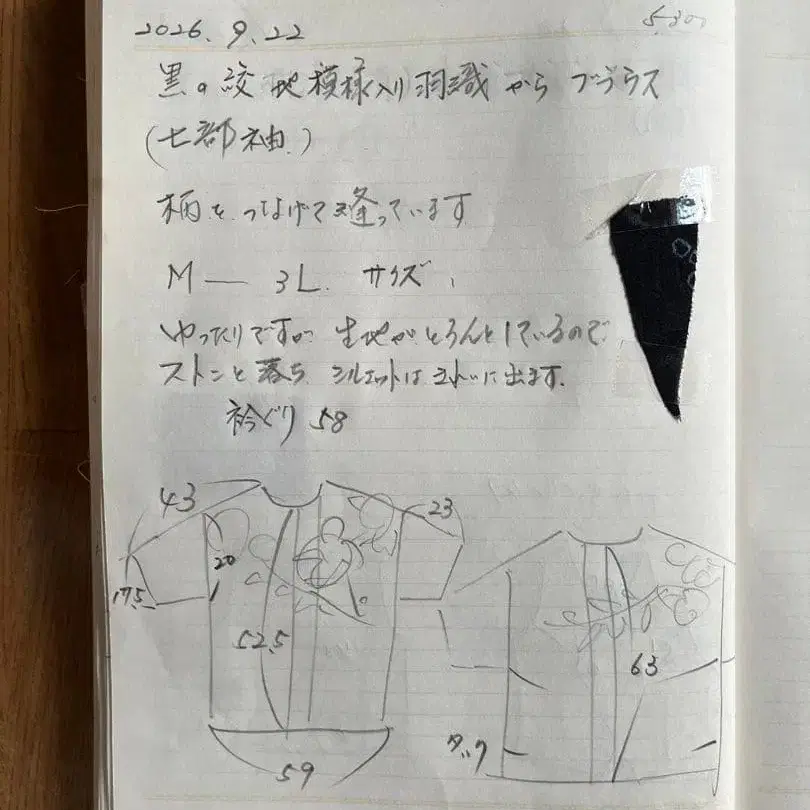 2026.9.22
5,800
黒の絞地模様入り羽織からブラウス
(七部袖)
柄をつなげて逢っています
M — 3L.サイズ
ゆったりですが生地がとろんとしているので
ストンと落ちシルエットはきれいに出ます.
衿ぐり 58
43
23
20
17.5
52.5
63
タック
59